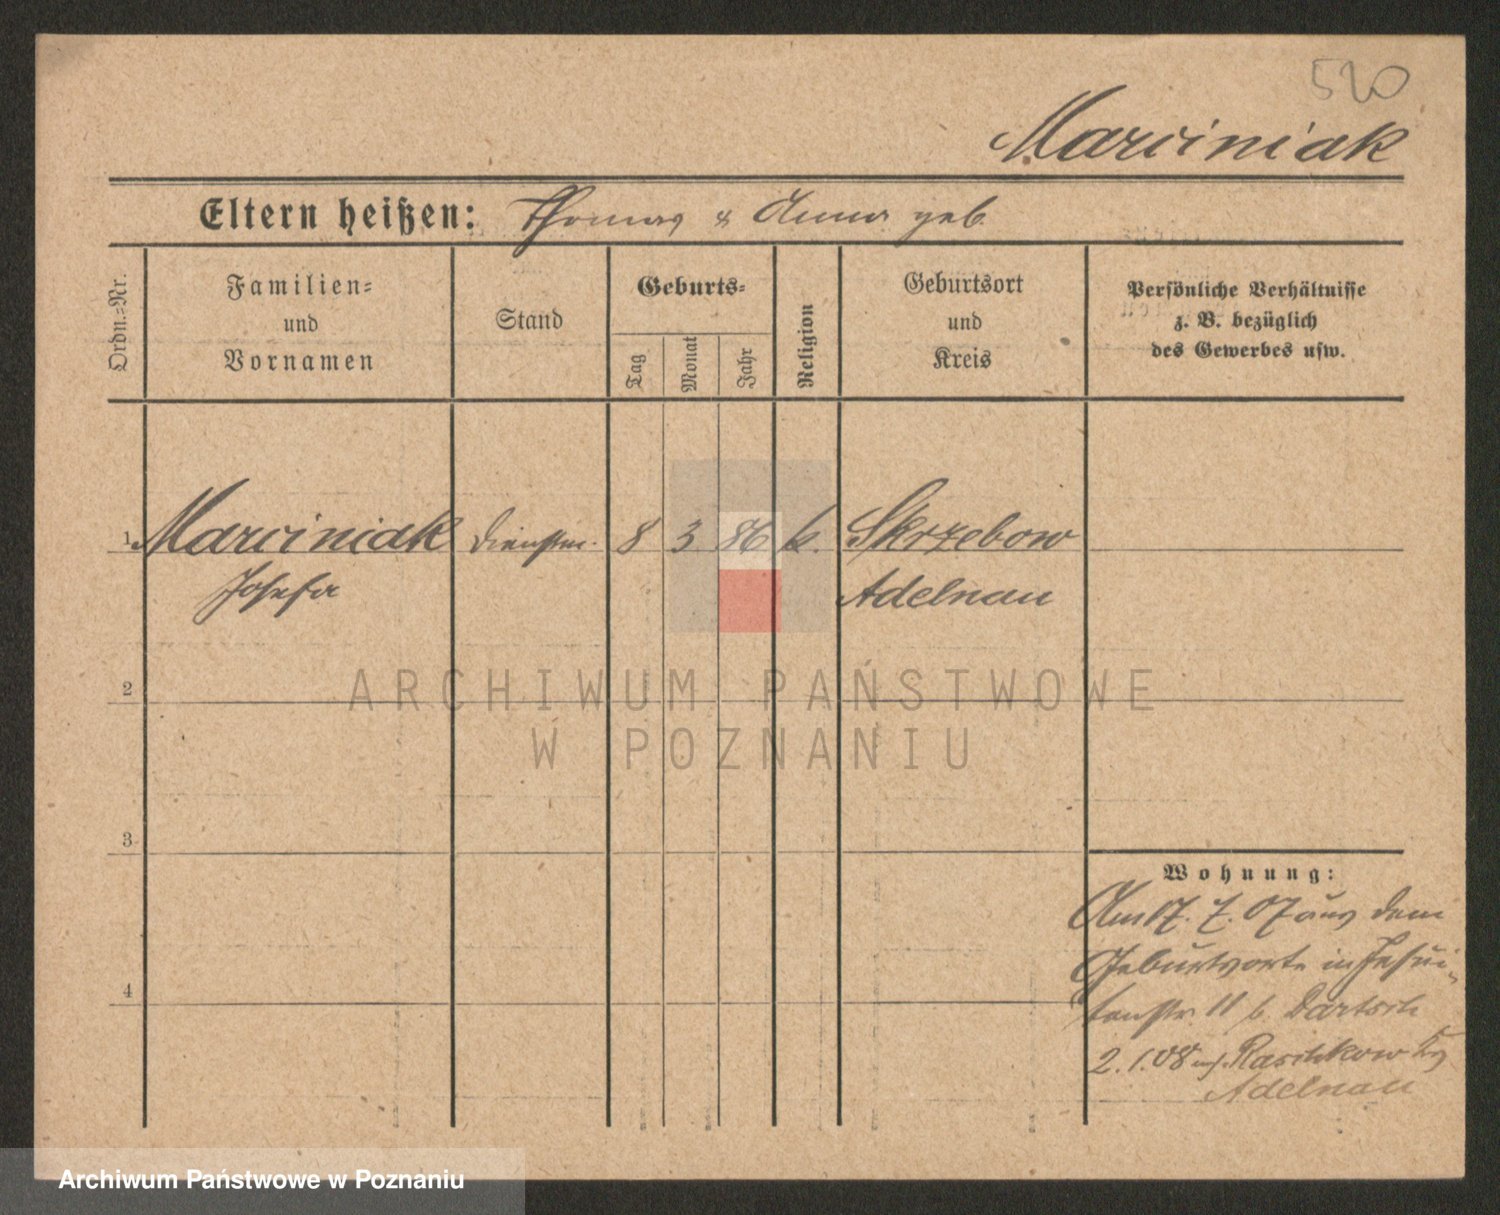 520
Marciniak
Eltern heißen: Thomas & Anna geb.
Ordn.-Nr.
Familien-
und
Vornamen
Stand
Geburts-
Tag
Monat
Jahr
Religion
Geburtsort
und
Kreis
Persönliche Verhältnisse
z. B. bezüglich
des Gewerbes usw.
1 Marciniak Dienstm. 8 3 86 k. Skrzebow
Josefa Adelnau
2
3
4
Wohnung:
Am 17. 7. 07 aus dem
Geburtsorte in Jesui-
tenstr. 11 b. Bartsch
2.1.08 Raschkow
Adelnau
ARCHIWUM PAŃSTWOWE
W POZNANIU
Archiwum Państwowe w Poznaniu